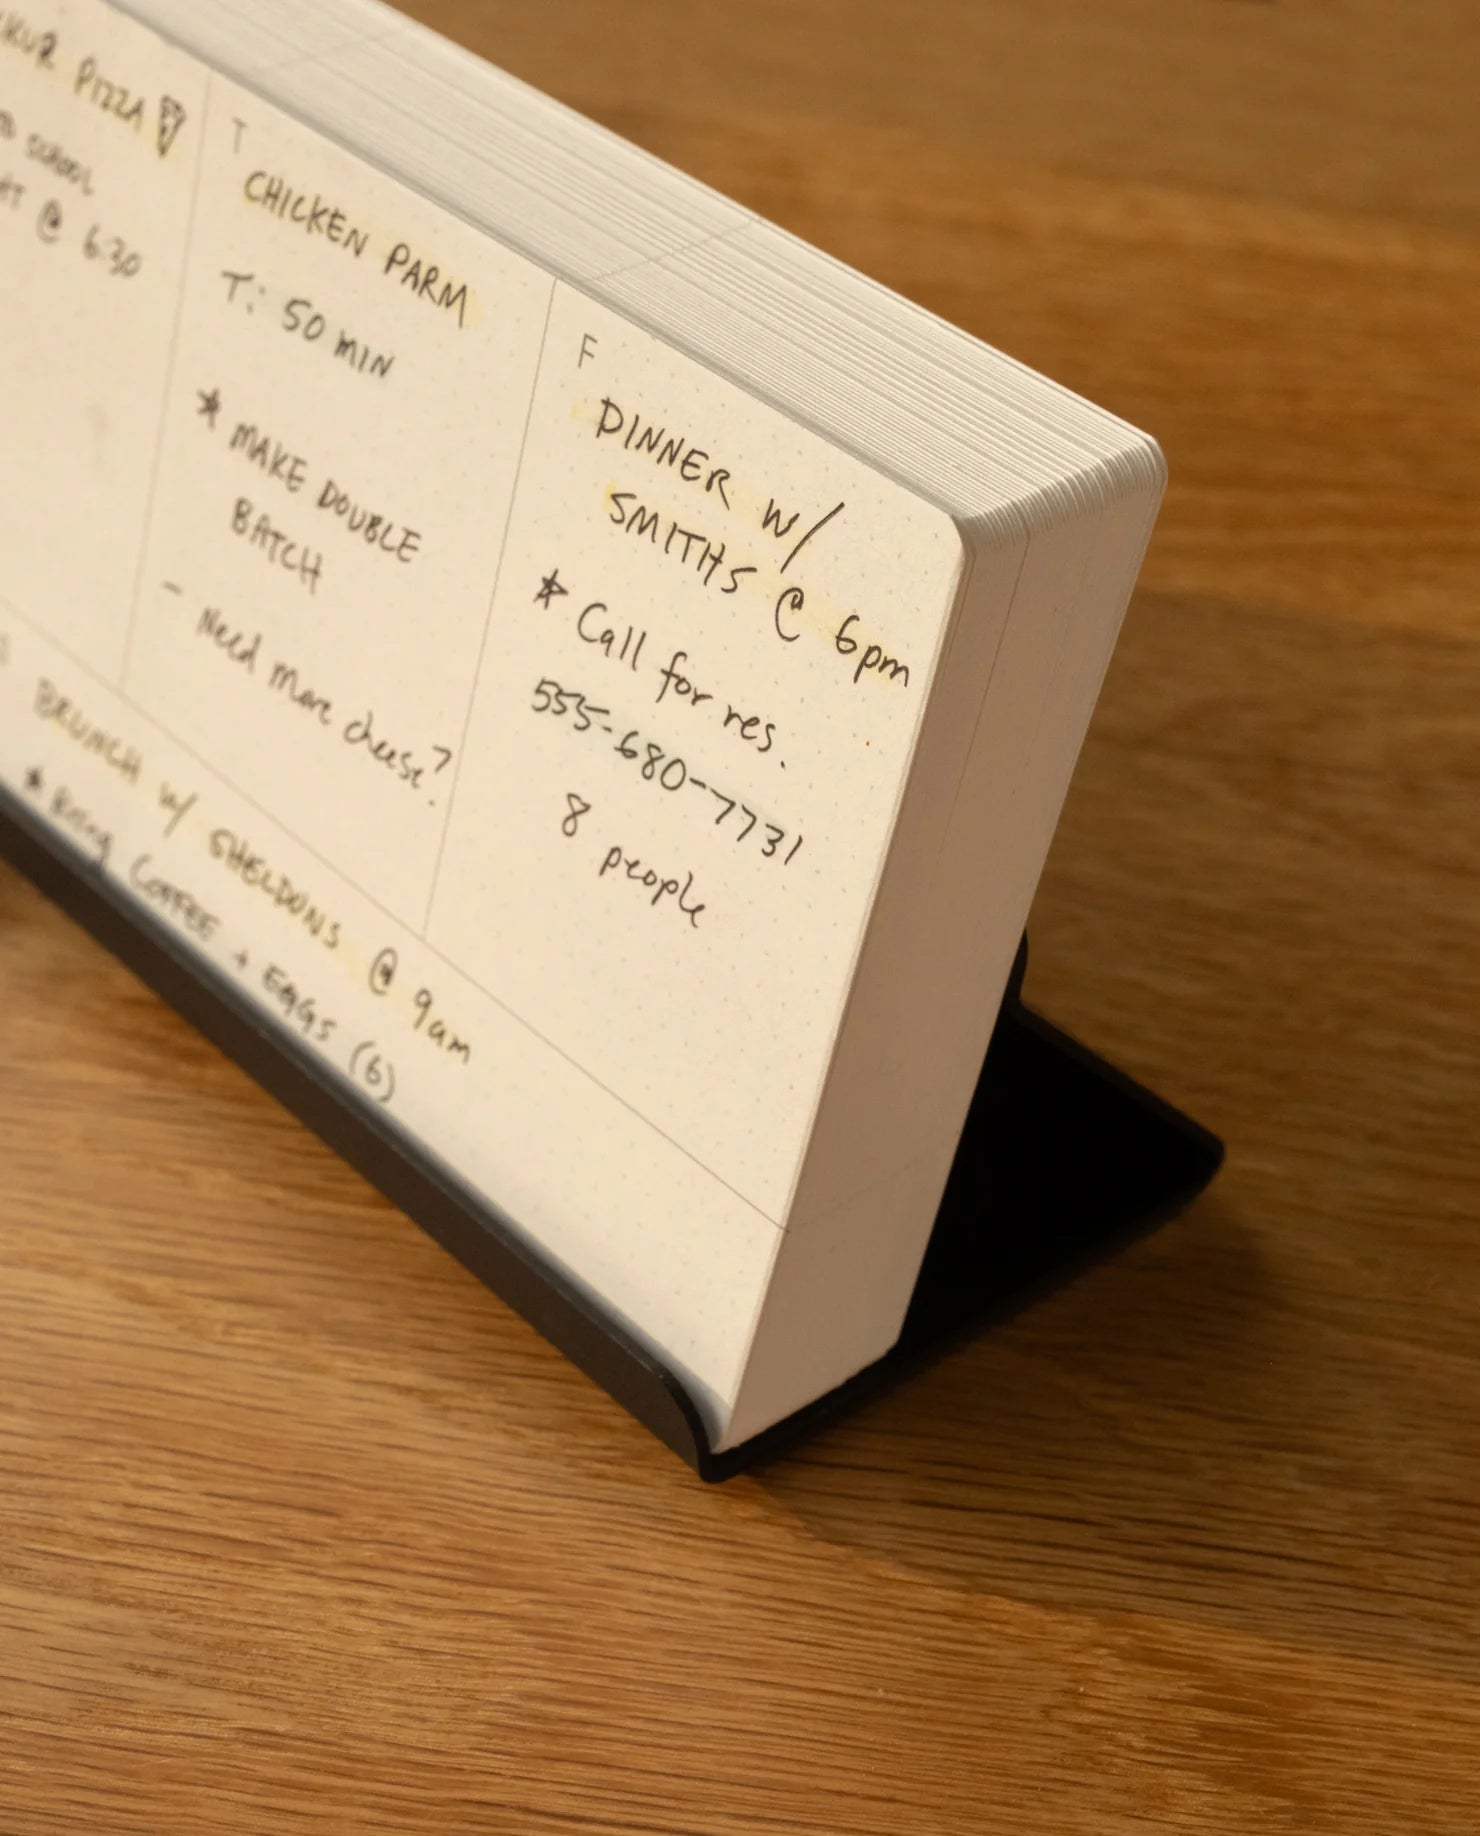 PIZZA
SCHOOL
@ 6:30
T
CHICKEN PARM
T: 50 MIN
* MAKE DOUBLE
BATCH
- Need more cheese?
F
DINNER W/
SMITHS @ 6pm
* Call for res.
555-680-7731
8 people
S
BRUNCH W/ SHELDONS @ 9am
* Bring COFFEE + EGGS (6)